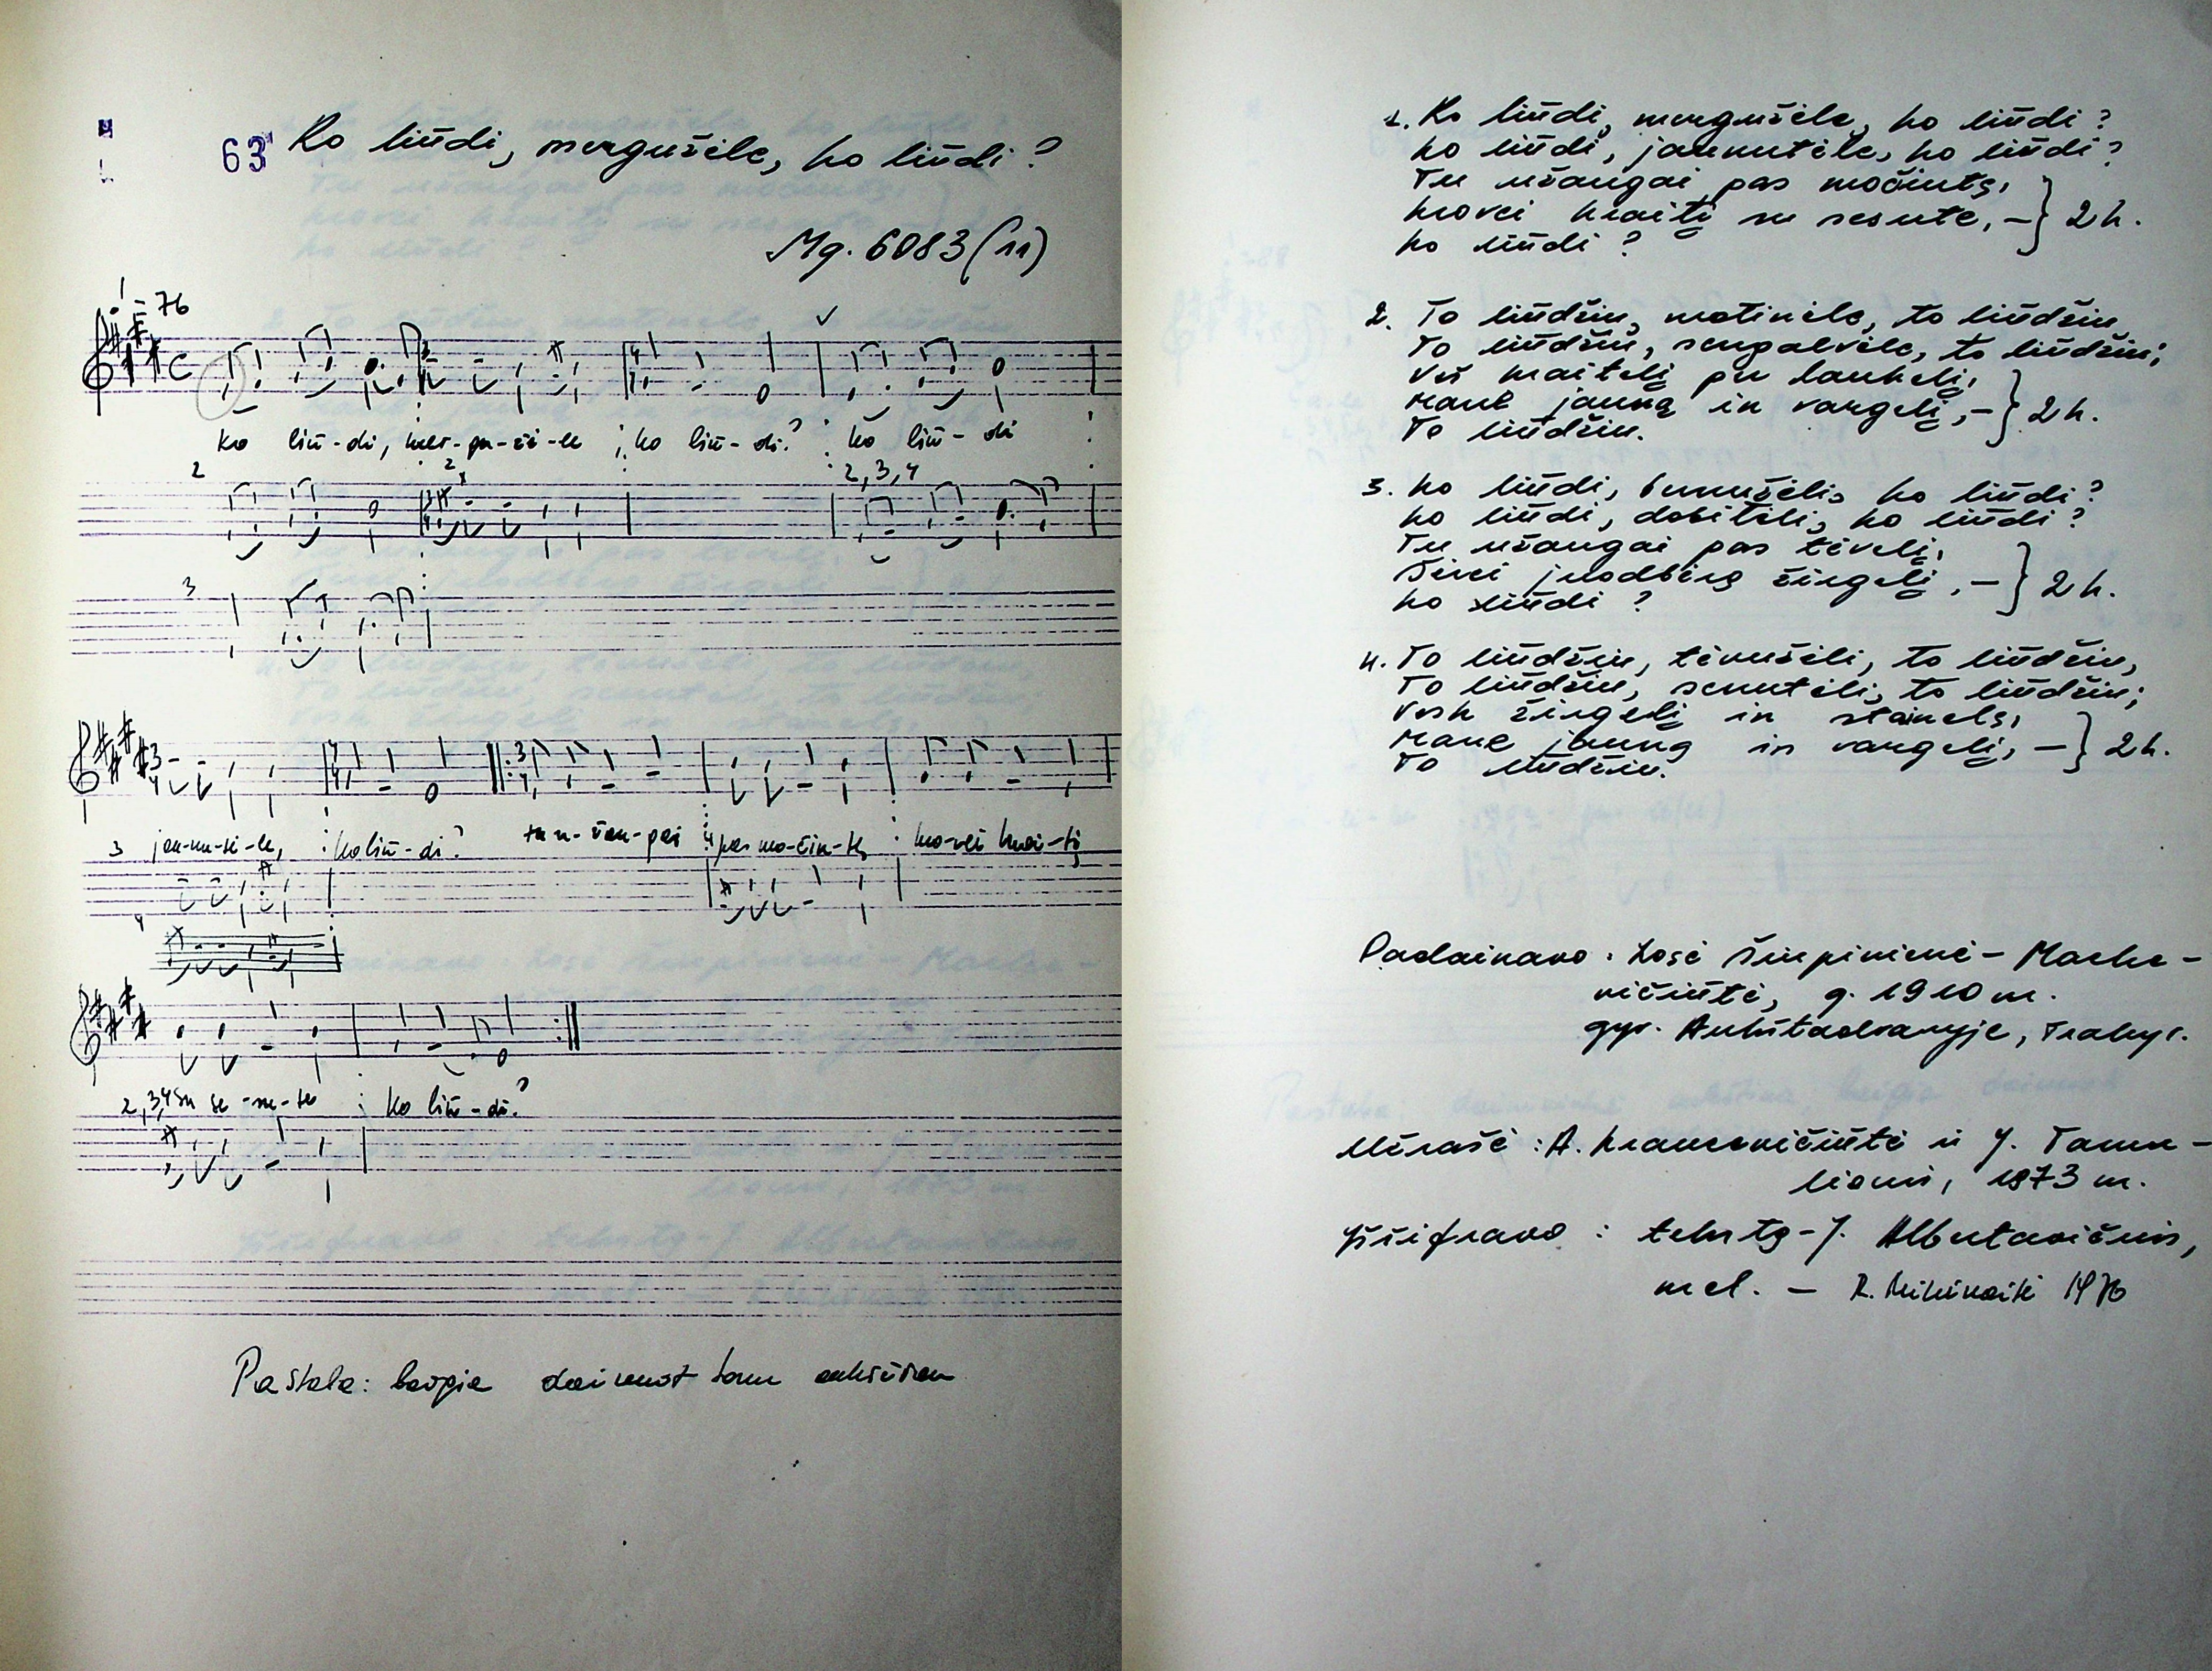 63 Ko liūdi, mergužėle, ko liūdi?
Mg. 6083 (11)
= 76
ko liū-di, mer-gu-žė-le ko liū-di? ko liū-di
2
2
2, 3, 4
3
jau-nu-tė-le, ko liū-di? tu u-žau-gai pas mo-čiu-tę kro-vei krai-tį
3
4
4
su se-su-te ko liū-di?
2, 3, 4
Pastaba: baigia dainuot tonu aukščiau
1. Ko liūdi, mergužėle, ko liūdi?
Ko liūdi, jaunutėle, ko liūdi?
Tu užaugai pas močiutę,
Krovei kraitį su sesute, – } 2 k.
Ko liūdi?
2. To liūdžiu, motinėle, to liūdžiu,
To liūdžiu, sengalvėle, to liūdžiu;
Veš kraitelį per laukelį,
Mane jauną in vargelį, – } 2 k.
To liūdžiu.
3. Ko liūdi, bernužėli, ko liūdi?
Ko liūdi, dobilėli, ko liūdi?
Tu užaugai pas tėvelį,
Šėrei juodbėrą žirgelį, – } 2 k.
Ko liūdi?
4. To liūdžiu, tėvužėli, to liūdžiu,
To liūdžiu, senutėli, to liūdžiu;
Vesk žirgelį in stainelę,
Mane jauną in vargelį, – } 2 k.
To liūdžiu.
Padainavo: Zosė
vičiūtė, g. 1910 m.
gyv. Aukštadvaryje, Trakų r.
Užrašė: A. Krancevičiūtė ir J. Tamu-
lionis, 1973 m.
Iššifravo: tekstą – J. Albertavičius,
mel. –